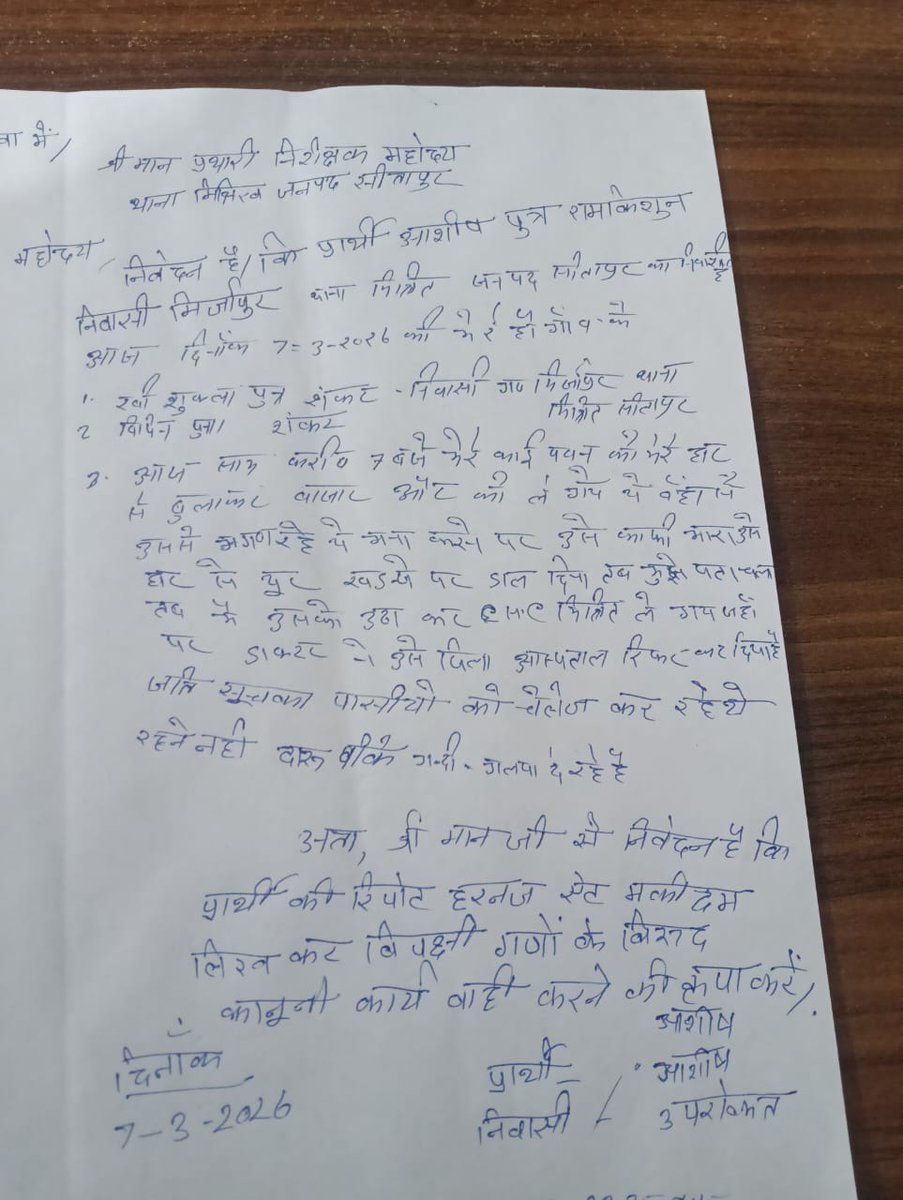 वा में,
श्री मान प्रभारी निरीक्षक महोदय
थाना मिश्रिख जनपद सीतापुर
महोदय,
निवेदन है, कि प्रार्थी आशीष पुत्र रामकिशुन
निवासी मिर्जापुर थाना मिश्रित जनपद सीतापुर का निवासी है
आज दिनाँक 7-3-2026 को मेरे ही गाँव के
1. रवी शुक्ला पुत्र शंकर - निवासी गण मिर्जापुर थाना
मिश्रित सीतापुर
2 विपिन पुत्र। शंकर
3. आज साम करीब 7 बजे मेरे भाई पवन को मेरे घर
से बुलाकर बाजार को ले गये थे वहां से
उससे थे मना करने पर उसे काफी मारा उसे
घर से खडन्जे पर डाल दिया तब मुझे पता चला
तब मै उसको उठा कर मिश्रित ले गय जहाँ
पर डाक्टर ने उसे जिला अस्पताल रिफर कर दिया है
जाति सूचका पासीयो को चैलेज कर रहे थे
रहने नही दारू पीके गन्दी - गलया दे रहे है
अता, श्री मान जी से निवेदन है कि
प्रार्थी की रिपोट मकीदम
लिख कर विपक्षी गणों के विरुद
कानूनी कार्य वाही करने की कृपा करें,
आशीष
दिनाँक
7-3-2026
प्रार्थी - आशीष
निवासी / उपरोक्त